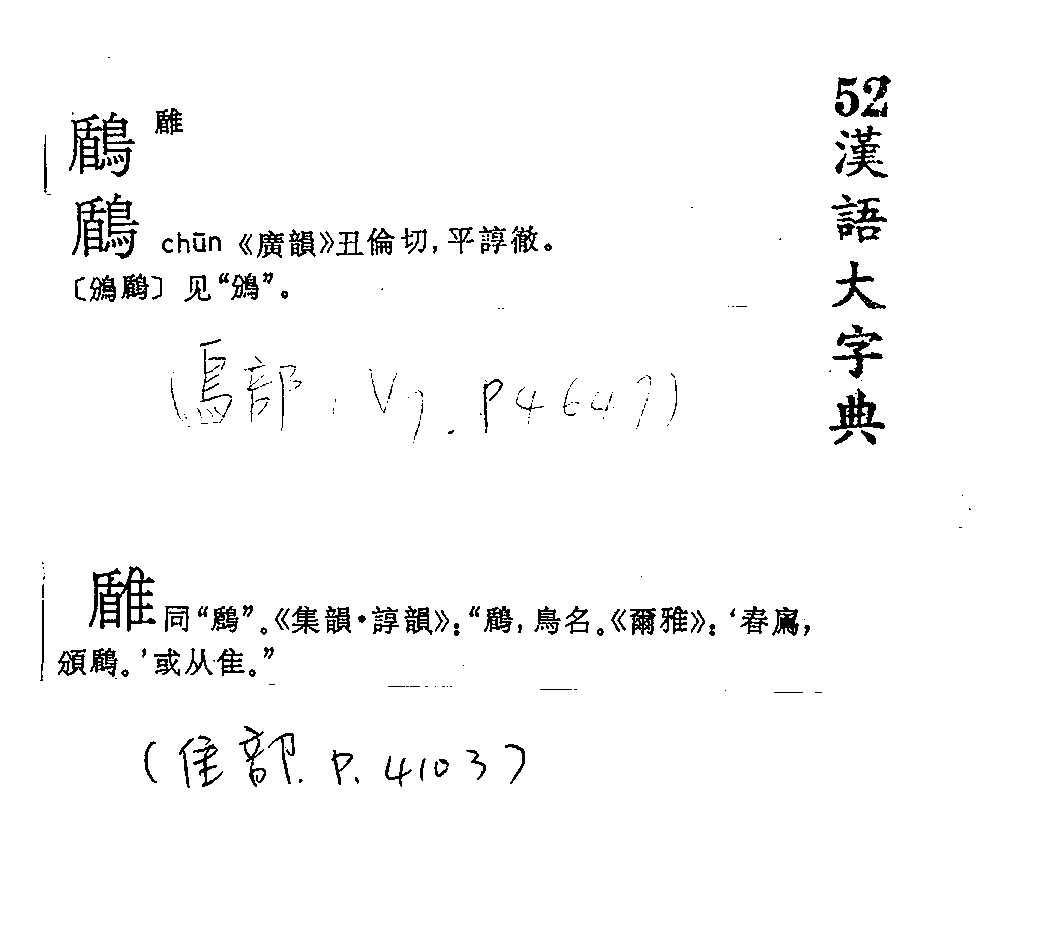 52漢語大字典
chūn《廣韻》丑倫切，平諄徹。
〔鳻〕见“鳻”。
（鳥部，V7. P4647）
同“”。《集韻·諄韻》：“，鳥名。《爾雅》：‘春鳸，
頒。’或从隹。”
（隹部. P. 4103）